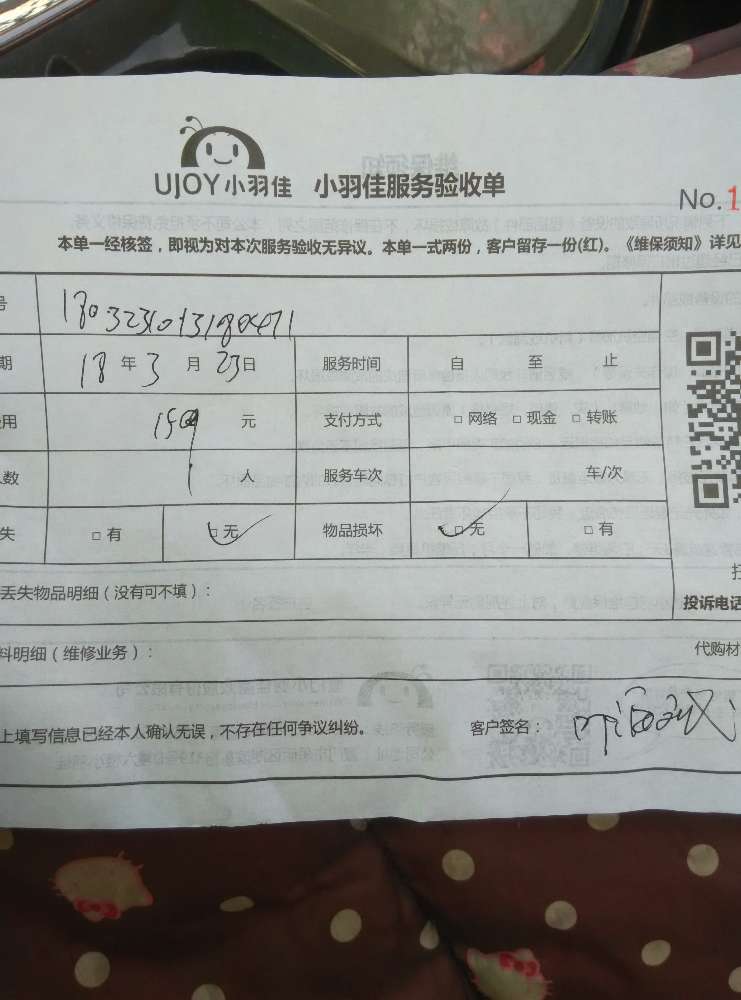 UJOY小羽佳 小羽佳服务验收单
No.1
本单一经核签，即视为对本次服务验收无异议。本单一式两份，客户留存一份(红)。《维保须知》详见
号
期 18 年 3 月 23 日 服务时间 自 至 止
用 元 支付方式 □ 网络 □ 现金 □ 转账
人数 1 人 服务车次 车/次
失 □ 有 □ 无 物品损坏 □ 无 □ 有
丢失物品明细（没有可不填）：
投诉电话
料明细（维修业务）：
代购材
上填写信息已经本人确认无误，不存在任何争议纠纷。 客户签名：